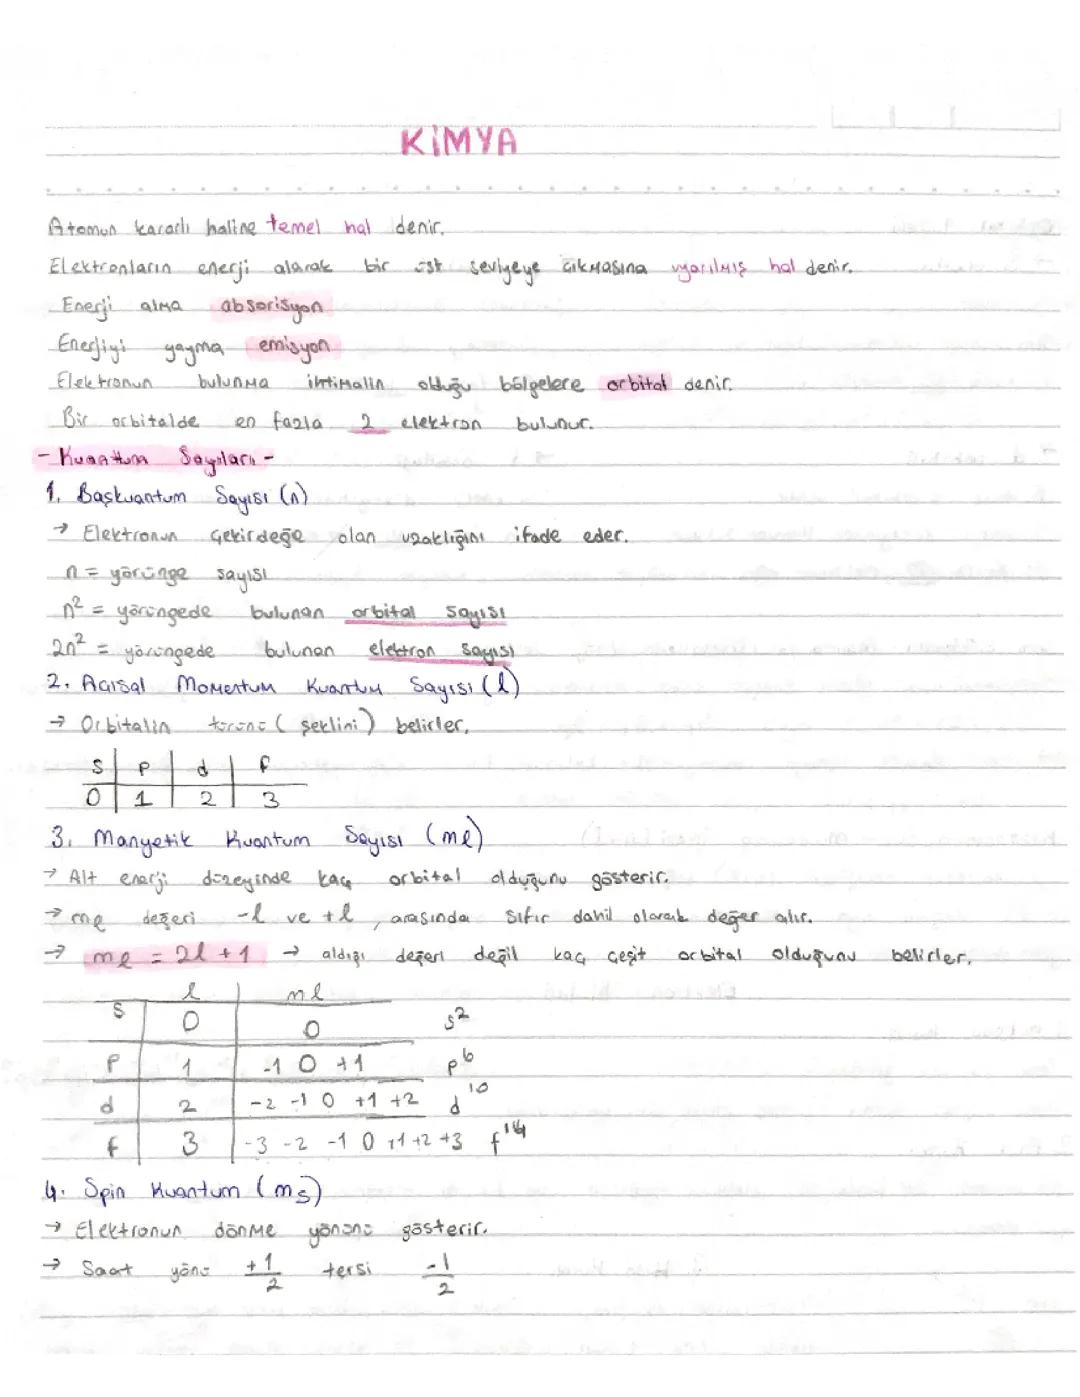 KİMYA
Atomun kararlı haline temel hal denir.
Elektronların enerji alarak bir üst seviyeye çıkmasına uyarılmış hal denir.
Enerji alma absorisyon
Enerjiyi yayma emisyon
Elektronun bulunma ihtimalin olduğu bölgelere orbital denir.
Bir orbitalde en fazla 2 elektron bulunur.
- Kuantum Sayıları -
1. Başkuantum Sayısı (n)
→ Elektronun çekirdeğe olan uzaklığını ifade eder.
n = yörünge sayısı
n² = yörüngede bulunan orbital sayısı
2n² = yörüngede bulunan elektron sayısı
2. Açısal Momentum Kuantum Sayısı (l)
→ Orbitalin türünü (şeklini) belirler.
s p d f
0 1 2 3
3. Manyetik Kuantum Sayısı (ml)
→ Alt enerji düzeyinde kaç orbital olduğunu gösterir.
→ ml değeri -l ve +l, arasında sıfır dahil olarak değer alır.
→ ml = 2l + 1 → aldığı değeri değil kaç çeşit orbital olduğunu belirler.
l ml
s 0 0 s²
p 1 -1 0 +1 p⁶
d 2 -2 -1 0 +1 +2 d¹⁰
f 3 -3 -2 -1 0 +1 +2 +3 f¹⁴
4. Spin Kuantum (ms)
→ Elektronun dönme yönünü gösterir.
→ Saat yönü +1/2 tersi -1/2